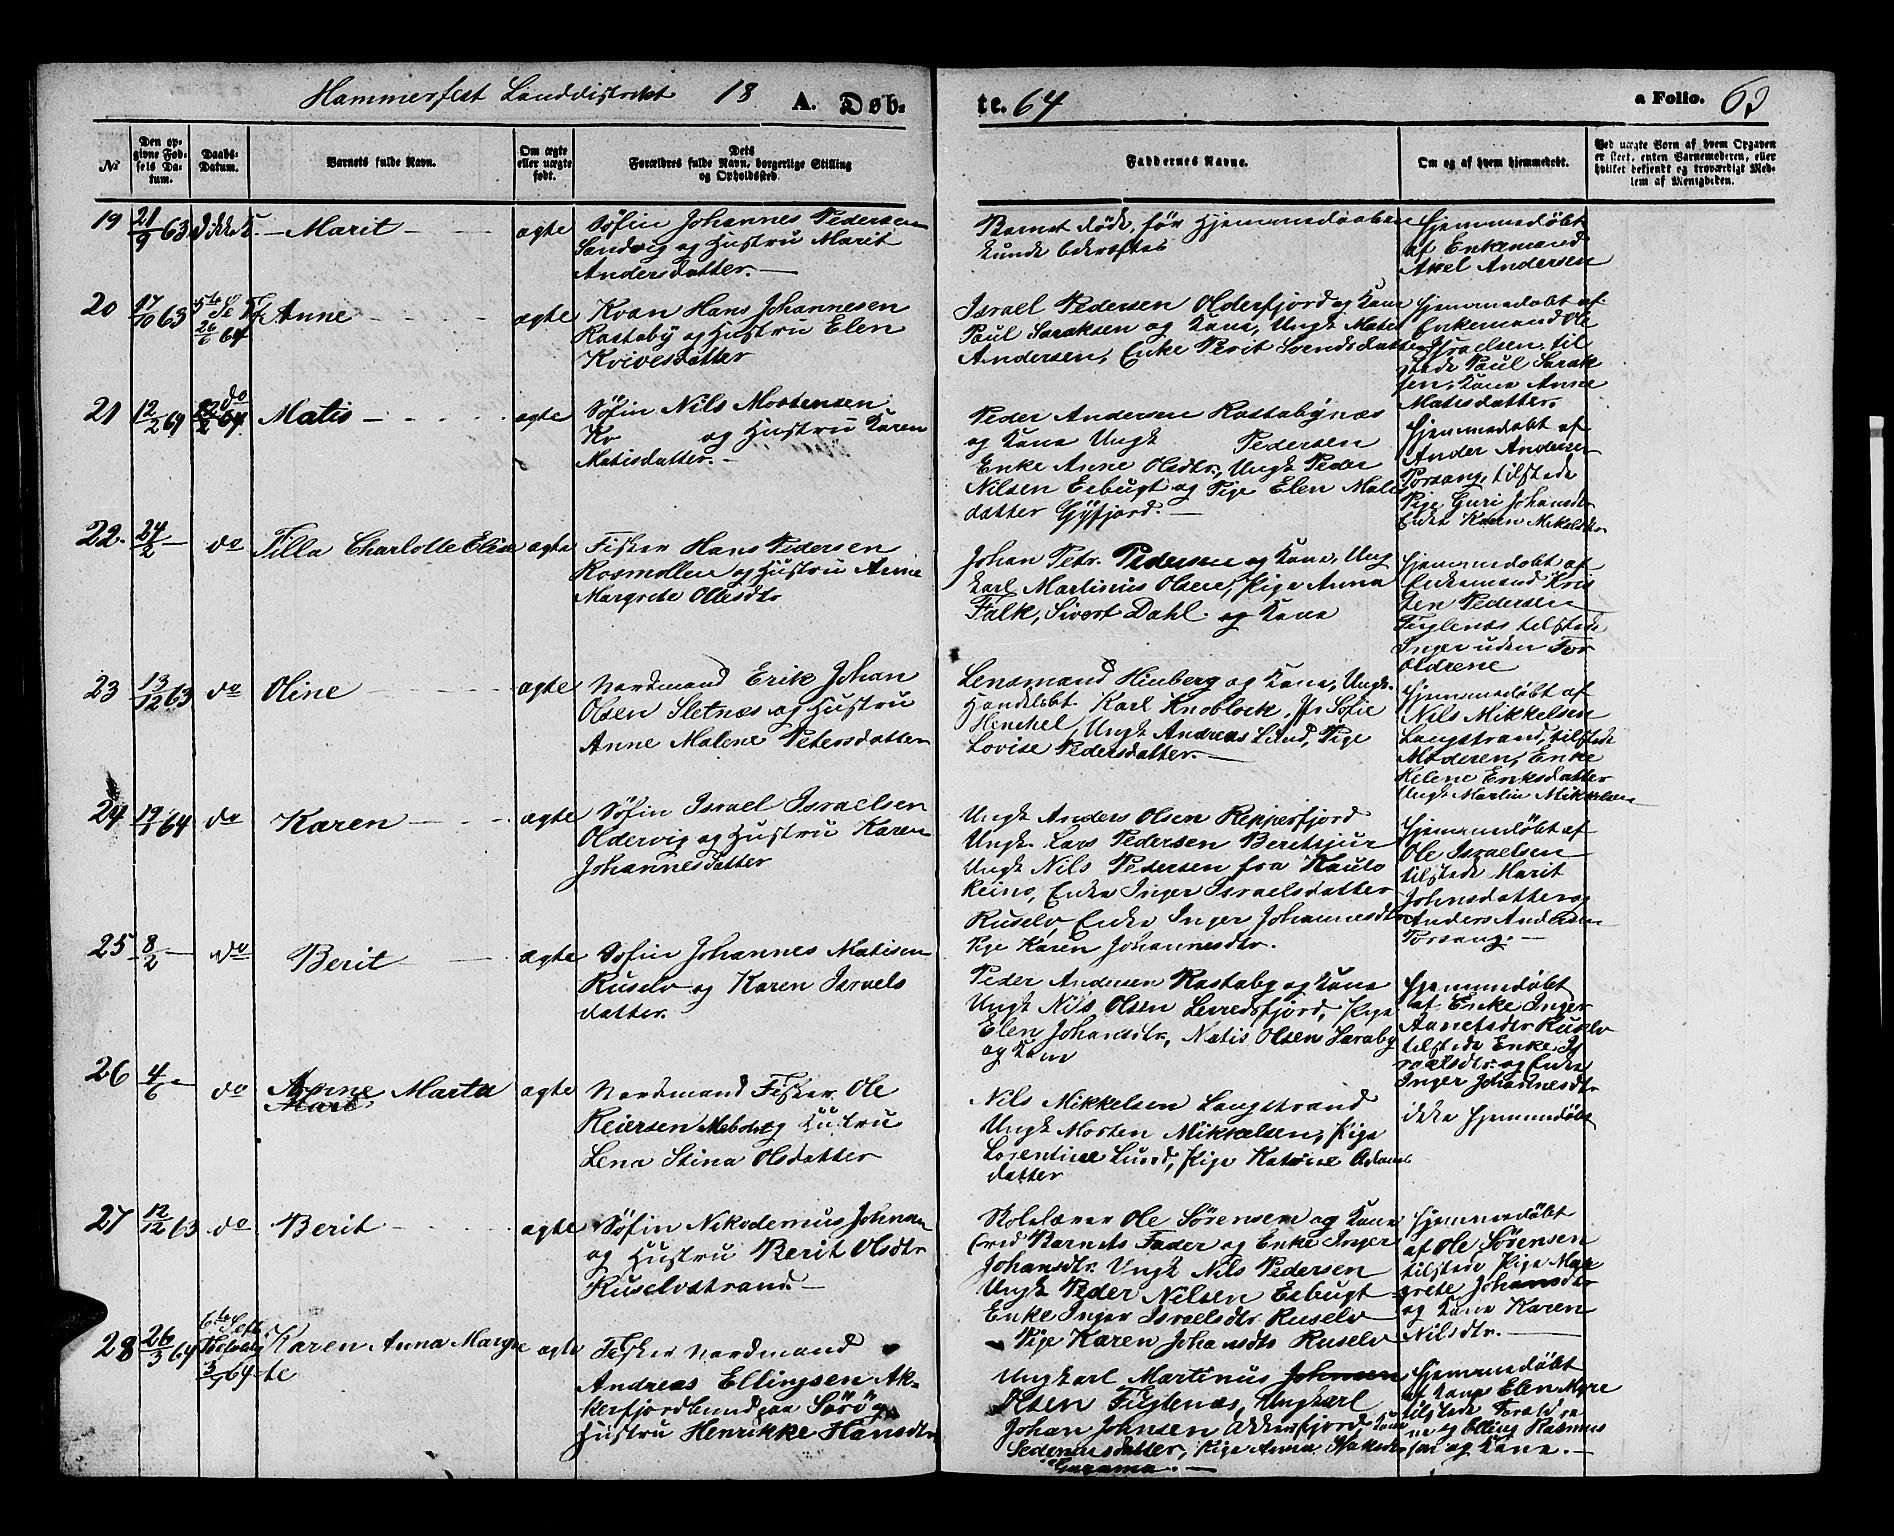 Hammerfest Landdistrikt 18 A. Døb-
te. 64 a Folio. 62
No
Den op-
givne Fød-
sels Da-
tum.
Daabs-
Datum.
Barnets fulde Navn.
Om ægte
eller uægte
født.
Dets
Forældres fulde Navn, borgerlige Stilling
og Opholdssted.
Faddernes Navne.
Om og af hvem hjemmedøbt.
Ved uægte Børn af hvem Opgaven
er skeet, enten Barnemoderen, eller
hvilket bekjendt og troværdigt Med-
lem af Menigheden.
19 21/9 63 Marit agte
Søfin Johannes Pedersen
Sandvig og Hustru Marit
Andersdatter.
Barnet døde, før Hjemmedaaben
kunde bekræftes
Hjemmedøbt
af Enkemand
Axel Andersen
20 17/10 63 26/6 64 Anne agte
Kvæn Hans Johannesen
Rastaby og Hustru Elen
Kvivesdatter
Israel Pedersen Olderfjord og Kone
Paul Saraksen og Kone, Ungk Matis
Andersen, Enke Berit Svendsdatter
Hjemmedøbt af
Enkemand Ole
Israelsen, til
stede Paul Sarak
sen, Kone Anne
Matisdatter.
21 12/2 64 do Matis agte
Søfin Nils Mortensen
Kv og Hustru Karen
Matisdatter.
Peder Andersen Rastabynæs
og Kone Ungk Pedersen
Enke Anne Olsdtr, Ungk Peder
Nilsen Eebugt og Pige Elen Matis
datter Gyfjord.
Hjemmedøbt af
Ander Andersen
Porsang, tilstede
Pige Guri Johansdtr
Enke Karen Mikelsdtr.
22. 24/2 do Tilla Charlotte Elisa agte
Fisker Hans Pedersen
Rosmollen og Hustru Anne
Margrete Olesdtr
Johan Petr. Pedersen og Kone, Ung
karl Martinus Olsen, Pige Anna
Falk, Sivert Dahl og Kone
Hjemmedøbt af
Enkemand Kris
ten Pedersen
Fuglenæs tilstede
Inger uden For
ældrene
23 13/12 63 do Oline agte
Nordmand Erik Johan
Olsen Sletnæs og Hustru
Anne Malene Petersdatter
Lensmand Hinberg og Kone, Ungk.
Handelsbt. Karl Knoblock, Pr Sofie
Henchel, Ungk Andreas Lund, Pige
Lovise Pedersdatter.
Hjemmedøbt af
Nils Mikkelsen
Langstrand, tilstede
Moderen, Enke
Helene Eriksdatter
Ungk Martin Mikkelsen
24 19/1 64 do Karen agte
Søfin Israel Israelsen
Oldervig og Hustru Karen
Johannesdatter
Ungk Anders Olsen Repperfjord
Ungk. Lars Pedersen Beretsjur
Ungk Nils Pedersen fra Kauto
keino, Enke Inger Israelsdatter
Ruselv, Enke Inger Johannesdtr
Pige Karen Johannesdtr.
Hjemmedøbt af
Ole Israelsen
tilstede Marit
Johnsdatter og
Anders Andersen
Porsang.
25 8/2 do Berit agte
Søfin Johannes Matisen
Ruselv og Karen Israels
datter.
Peder Andersen Rastaby og Kone
Ungk Nils Olsen Leiredsfjord, Pige
Elen Johansdtr, Matis Olsen Saraby
og Kone
Hjemmedøbt
af Enke Inger
Aanetsdtr Ruselv
tilstede Enke Is
raelsdtr. og Enke
Inger Johannesdtr
26 4/6 do Anne Marta agte
Nordmand Fisker Ole
Reiersen Mebotn og Hustru
Lena Stina Olsdatter
Nils Mikkelsen Langstrand
Ungk Morten Mikkelsen, Pige
Lorentine Lund, Pige Katrine Adams
datter
ikke Hjemmedøbt
27 12/12 63 do Berit agte
Søfin Nikodemus Johnsen
og Hustru Berit Olsdtr
Ruselvstrand.
Skolelærer Ole Sørensen og Kone
(ved Barnets Fader og Enke Inger
Johansdtr. Ungk Nils Pedersen
Ungk Peder Nilsen Eebugt
Enke Inger Israelsdtr Ruselv
Pige Karen Johansdtr Ruselv
Hjemmedøbt
af Ole Sørensen
tilstede Pige Mar
grete Johansdtr
og Kone Karen
Nilsdtr.
28 26/3 64 Karen Anna Margre
te agte
Fisker Nordmand
Andreas Ellingsen Ak-
kerfjordbund paa Sørö og
Hustru Henrikke Hansdtr
Ungkarl Martinus Johnsen
Olsen Fuglenæs, Ungkarl
Johan Johnsen Akkerfjord, Kone
Sedeniusdatter, Pige Anna
Hjemmedøbt
af Kone Elen Myre
tilstede Foræld re
ne og Elling Rasmus
sen og Kone.